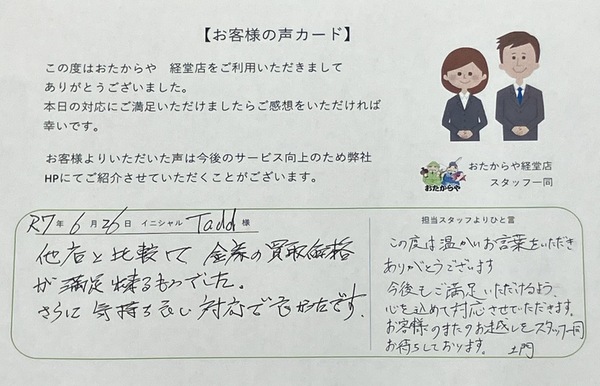 【お客様の声カード】
この度はおたからや 経堂店をご利用いただきまして
ありがとうございました。
本日の対応にご満足いただけましたらご感想をいただければ
幸いです。
お客様よりいただいた声は今後のサービス向上のため弊社
HPにてご紹介させていただくことがございます。
おたからや
おたからや経堂店
スタッフ一同
R7年 6月 26日 イニシャル Tadd 様
他店と比較して 金券の買取価格
が満足出来るものでした。
さらに気持ち良い対応で良かったです。
担当スタッフよりひと言
この度は温かいお言葉をいただき
ありがとうございます
今後もご満足いただけるよう、
心を込めて対応させていただきます。
お客様のまたのお越しをスタッフ一同
お待ちしております。 土門